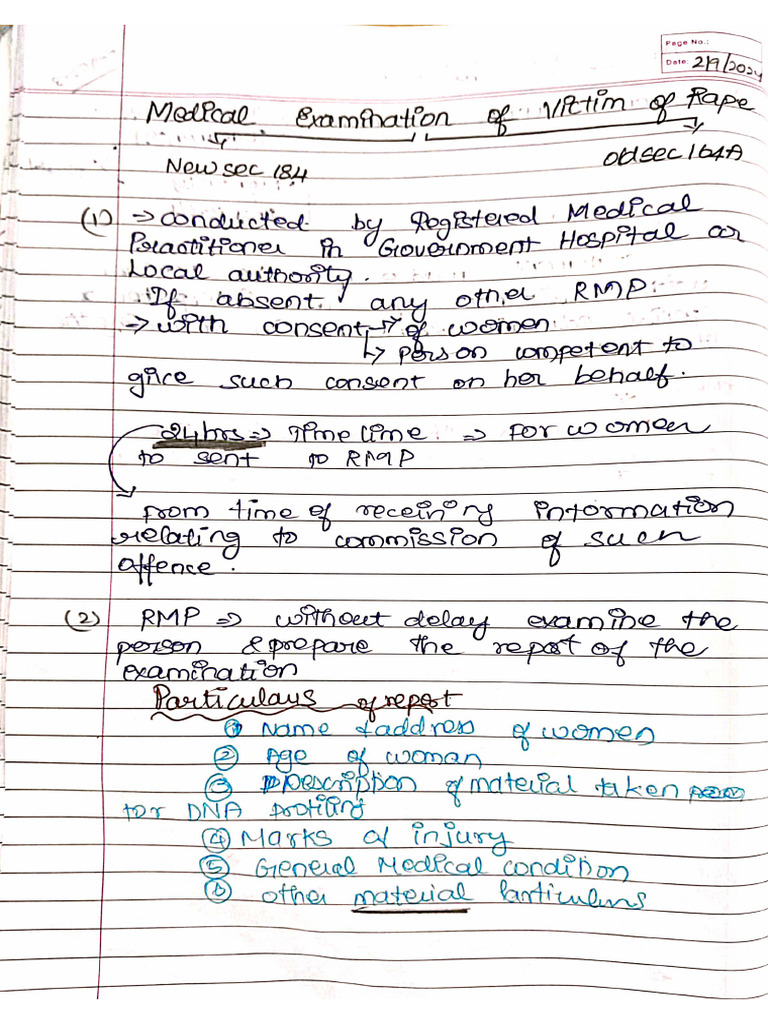 Page No.:
Date: 2/9/2024
Medical Examination of Victim of Rape
New sec 184
old sec 164A
(1) → conducted by Registered Medical
Practitioner in Government Hospital or
Local authority.
If absent any other RMP.
→ with consent → of women.
↳ person competent to
give such consent on her behalf.
24hrs ⇒ Timeline ⇒ for women
to sent to RMP
from time of receiving information
relating to commission of such
offence.
(2) RMP ⇒ without delay examine the
person & prepare the report of the
examination
Particulars of report
① Name & address of women
② Age of woman
③ Description of material taken
for DNA profiling
④ Marks of injury
⑤ General Medical condition
⑥ other material particulars